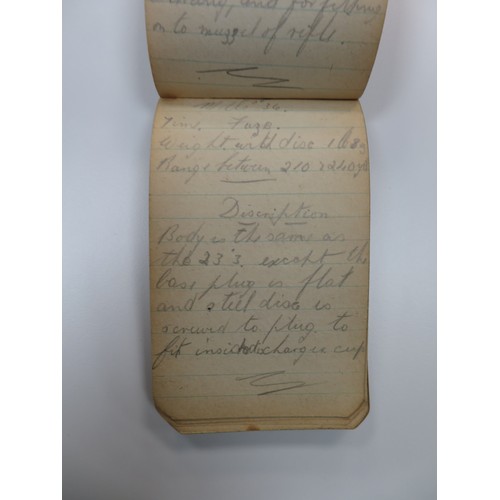 and for fitting
on to muzzel of rifle.
Mills No 36.
Time. Fuze.
Weight with disc 1 lb 8
Range between 210 & 240 yds
Discription
Body is the same as
the 23 3. except the
base plug is flat
and steel disc is
screwed to plug to
fit inside discharger cup